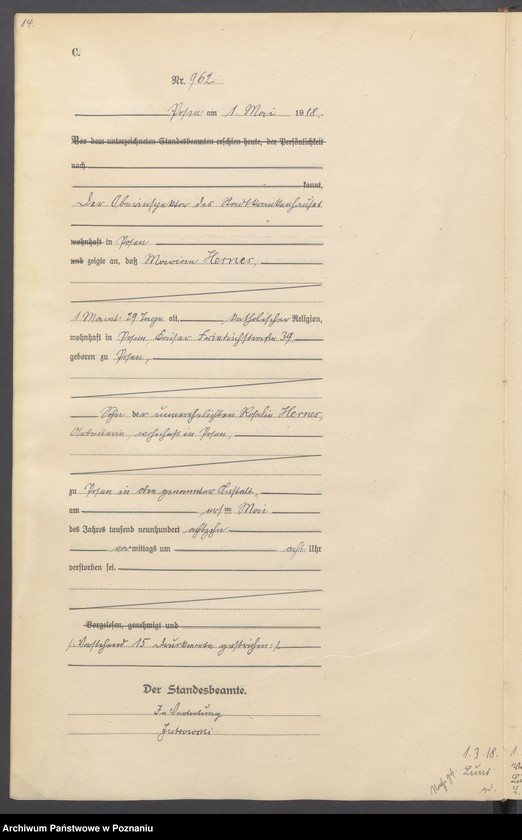 14.
C.
Nr. 962
Posen am 1 Mai 1918.
Vor dem unterzeichneten Standesbeamten erschien heute, der Persönlichkeit
nach
kannt,
Der Oberinspektor des Stadtkrankenhauses
wohnhaft in Posen
und zeigte an, daß Marian Herner,
1 Monat 29 Tage alt, katholischer Religion,
wohnhaft in Posen, Kaiser Friedrichstraße 39
geboren zu Posen,
Sohn der unverehelichten Rosalie Herner,
Arbeiterin, wohnhaft in Posen,
zu Posen in oben genannter Anstalt,
am ersten Mai
des Jahres tausend neunhundert achtzehn
vormittags um acht Uhr
verstorben sei.
Vorgelesen, genehmigt und
/: Vorstehend 15 Druckworte gestrichen :/
Der Standesbeamte.
In Vertretung
1.3.18.
Archiwum Państwowe w Poznaniu